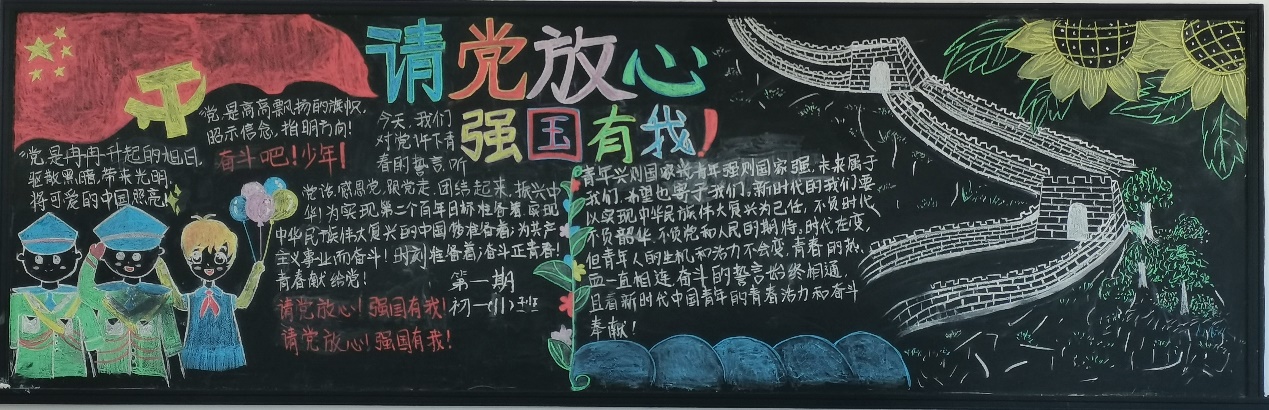 请党放心
强国有我！
“党是高高飘扬的旗帜，
昭示信念，指明方向！
“党是冉冉升起的旭日，
驱散黑暗，带来光明，
将可爱的中国照亮
奋斗吧！少年！
今天，我们
对党许下青
春的誓言，听
党话，感恩党，跟党走，团结起来，振兴中
华！为实现第二个百年目标准备着，实现
中华民族伟大复兴的中国梦准备着；为共产
主义事业而奋斗！时刻准备着；奋斗正青春！
青春献给党！
第一期
初一(11)班
请党放心！强国有我！
请党放心！强国有我！
青年兴则国家兴，青年强则国家强，未来属于
我们，希望也寄于我们，新时代的我们要
以实现中华民族伟大复兴为己任，不负时代，
不负韶华，不负党和人民的期待，时代在变，
但青年人的生机和活力不会变，青春的热
血一直相连，奋斗的誓言始终相通
且看新时代中国青年的青春活力和奋斗
奉献！